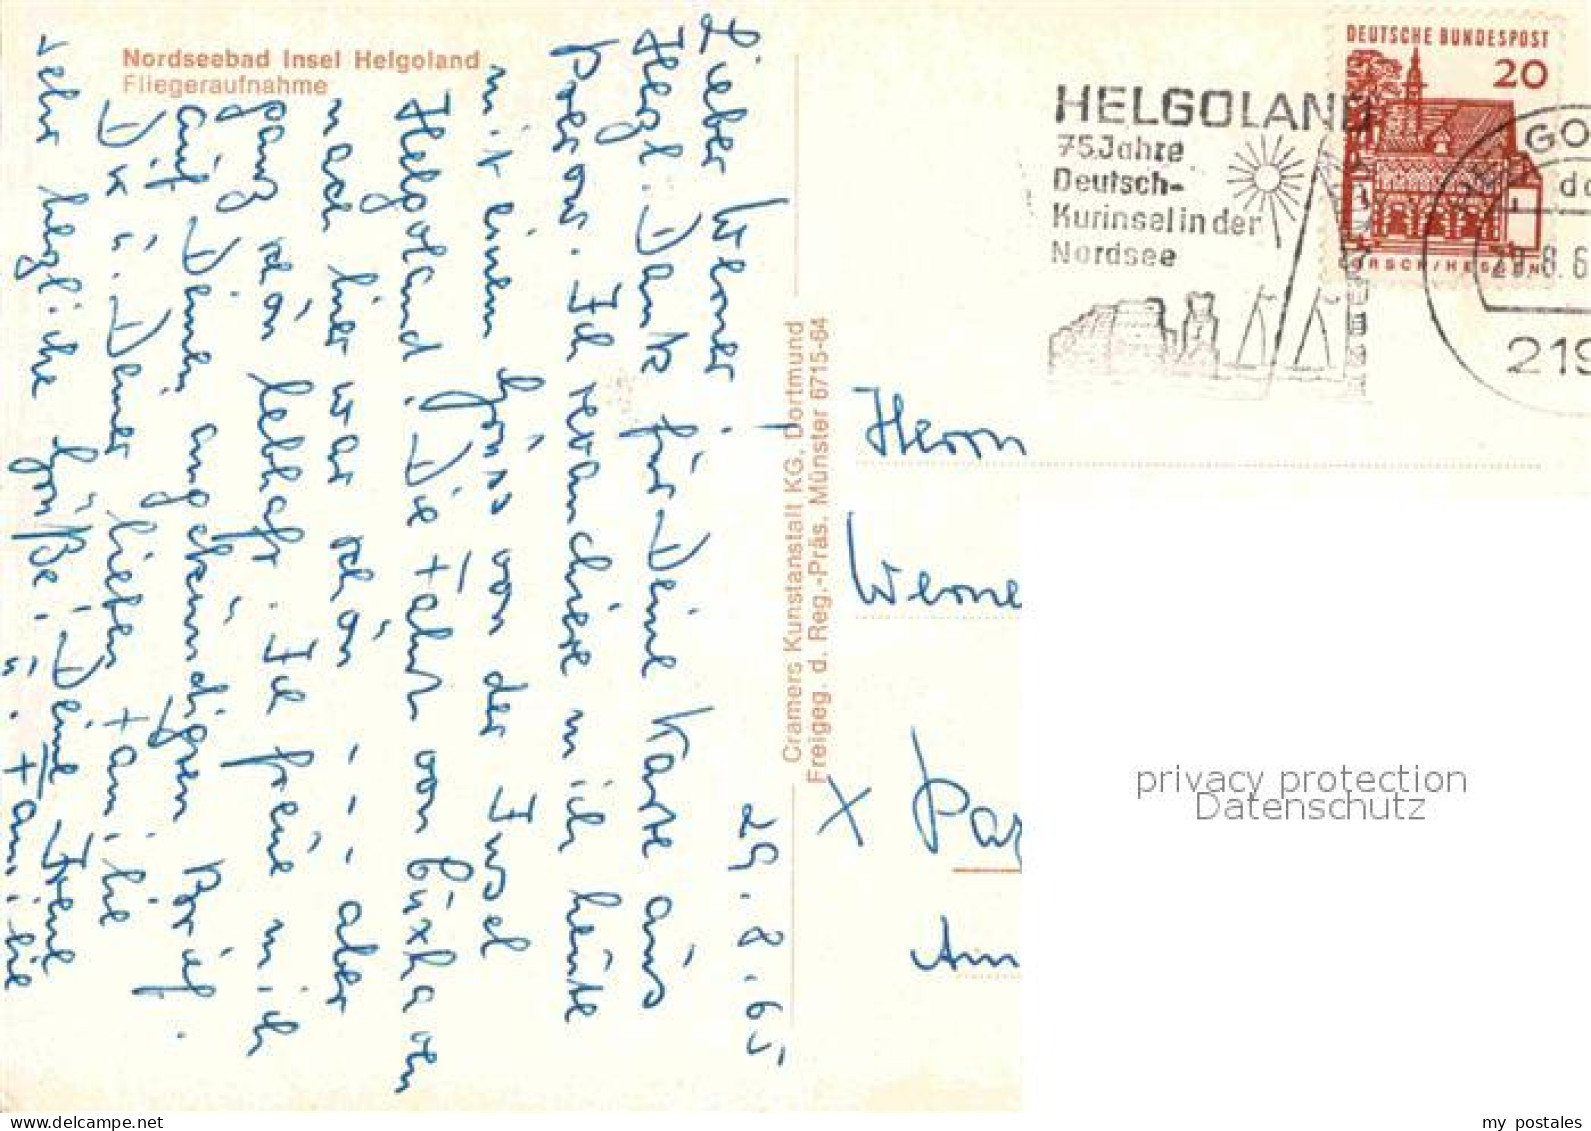 Nordseebad Insel Helgoland
Fliegeraufnahme
29.8.65
Lieber Werner!
Herzl. Dank für Deine Karte aus
Prerow. Ich revanchiere mich heute
mit einem Gruss von der Insel
Helgoland. Die Fahrt von
nach hier war schön, aber
ganz schön lebhaft. Ich freue mich
auf Deinen angekündigten Brief.
Dir u. Deiner lieben Familie
sehr herzliche Grüße! Deine Irene
u. Familie
Cramers Kunstanstalt KG, Dortmund
Freigeg. d. Reg.-Präs. Münster 6715-64
HELGOLAND
75 Jahre
Deutsch-
Kurinsel in der
Nordsee
DEUTSCHE BUNDESPOST
20
ORSCH/HESSEN
29.8.6
219
Herrn
Werne
X Par
Am
privacy protection
Datenschutz
my postales